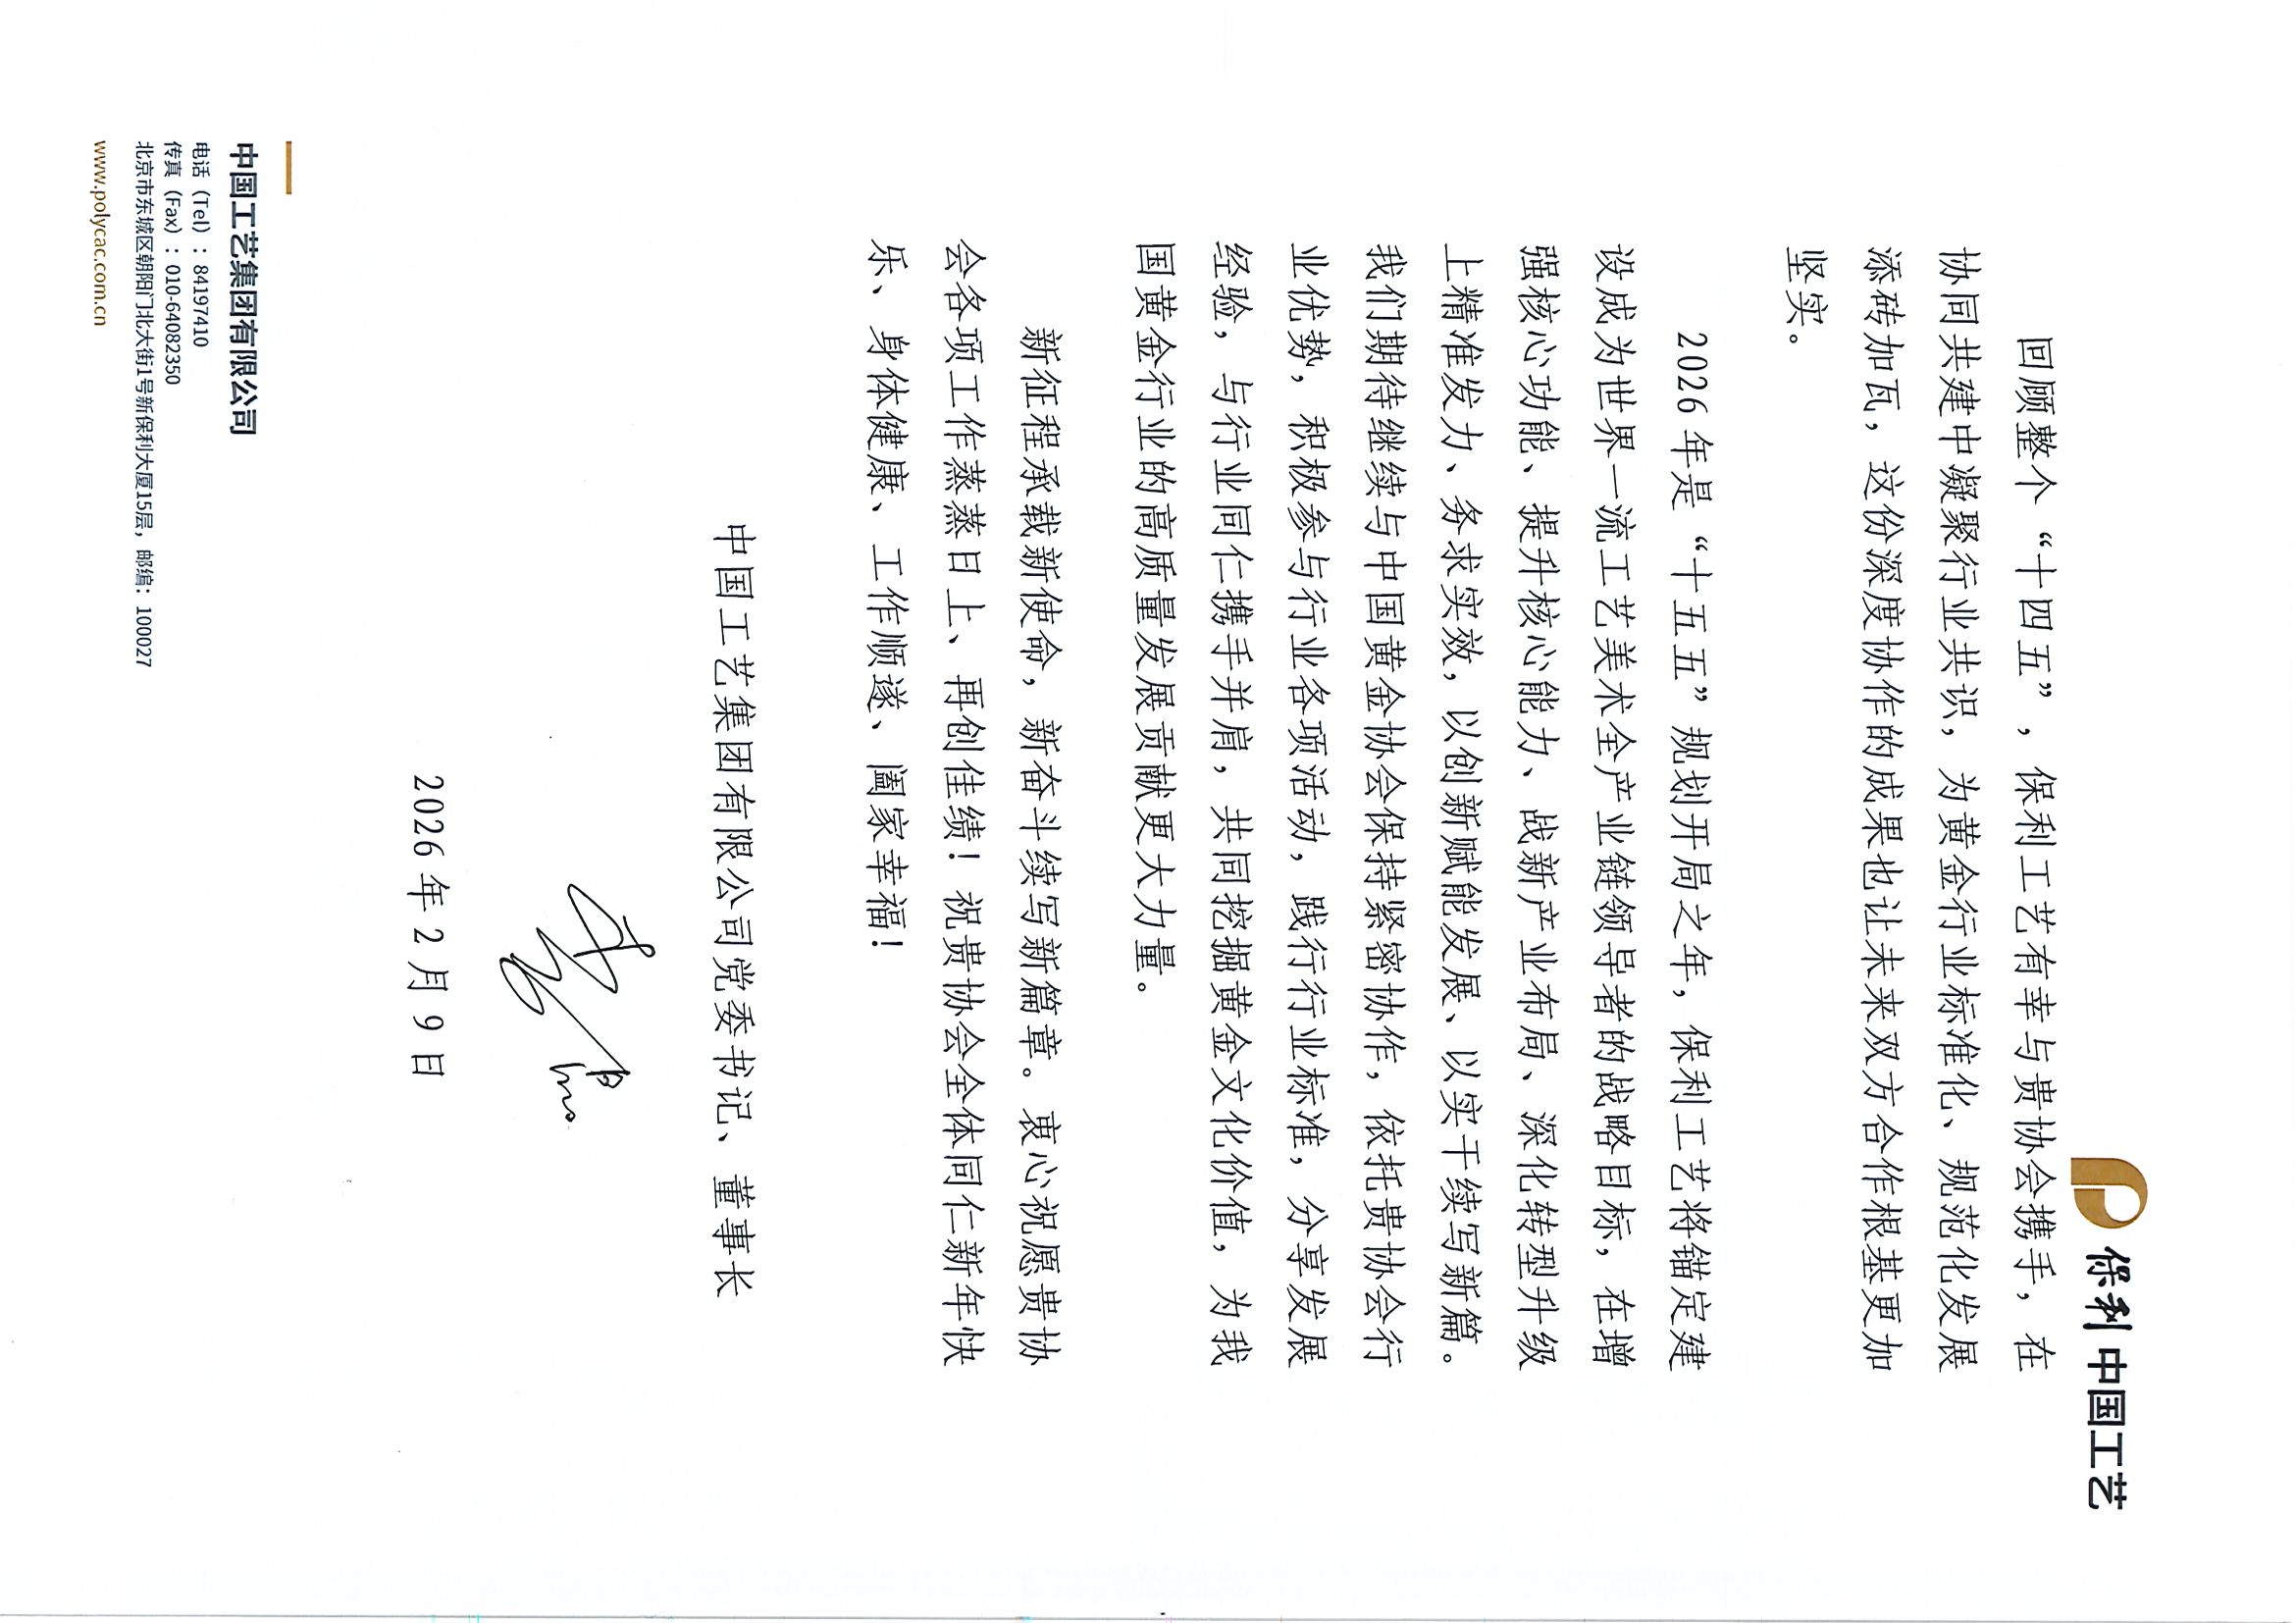 保利 中国工艺
回顾整个“十四五”，保利工艺有幸与贵协会携手，在
协同共建中凝聚行业共识，为黄金行业标准化、规范化发展
添砖加瓦，这份深度协作的成果也让未来双方合作根基更加
坚实。
2026年是“十五五”规划开局之年，保利工艺将锚定建
设成为世界一流工艺美术全产业链领导者的战略目标，在增
强核心功能、提升核心能力、战新产业布局、深化转型升级
上精准发力、务求实效，以创新赋能发展、以实干续写新篇。
我们期待继续与中国黄金协会保持紧密协作，依托贵协会行
业优势，积极参与行业各项活动，践行行业标准，分享发展
经验，与行业同仁携手并肩，共同挖掘黄金文化价值，为我
国黄金行业的高质量发展贡献更大力量。
新征程承载新使命，新奋斗续写新篇章。衷心祝愿贵协
会各项工作蒸蒸日上、再创佳绩！祝贵协会全体同仁新年快
乐、身体健康、工作顺遂、阖家幸福！
中国工艺集团有限公司党委书记、董事长
2026年2月9日
中国工艺集团有限公司
电话（Tel）：84197410
传真（Fax）：010-64082350
北京市东城区朝阳门北大街1号新保利大厦15层，邮编：100027
www.polycac.com.cn